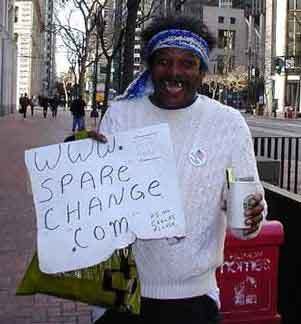 WWW.
SPARE
CHANGE
.COM
homes